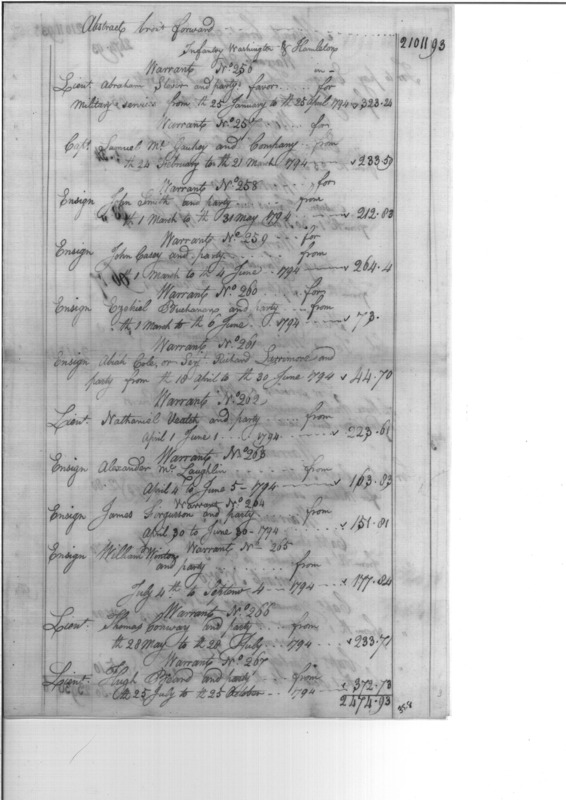 Abstracts brot forward 21011 93
Infantry Washington & Hamilton
Warrant No. 256 in
Lieut. Abraham and party favor for
Military service from th 25 January to th 25 April 1794 323.24
Warrants No. 257 for
Capt. Samuel Mc and Company from
th 24 February to th 21 March 1794 233.59
Warrants No. 258 for
Ensign John Smith and party from
th 1 March to th 31 May 1794 212.83
Warrants No. 259 for
Ensign John Casey and party from
th 1 March to th 4 June 1794 264.4
Warrants No. 260 for
Ensign Ezekiel Buchanan and party from
th 1 March to th 6 June 1794 73.
Warrants No. 261
Ensign Cole, or Richard and
party from th 10 April to th 30 June 1794 44.70
Warrants No. 262
Lieut. Nathaniel Veatch and party from
April 1 June 1 1794 223.61
Warrants No. 263
Ensign Alexander Mc Laughlin from
April 4 to June 5 - 1794 163.83
Warrant No. 264
Ensign James Fergusson and party from
April 30 to June 30 - 1794 151.81
Ensign William Warrants No. 265
and party from
July 4th to 4 - 1794 177.84
Warrants No. 266
Lieut. Thomas Conway and party from
th 28 May to th 28 July 1794 233.71
Warrants No. 267
Lieut. Hugh and party from
th 25 July to th 25 October 1794 372.73
2474.93
358